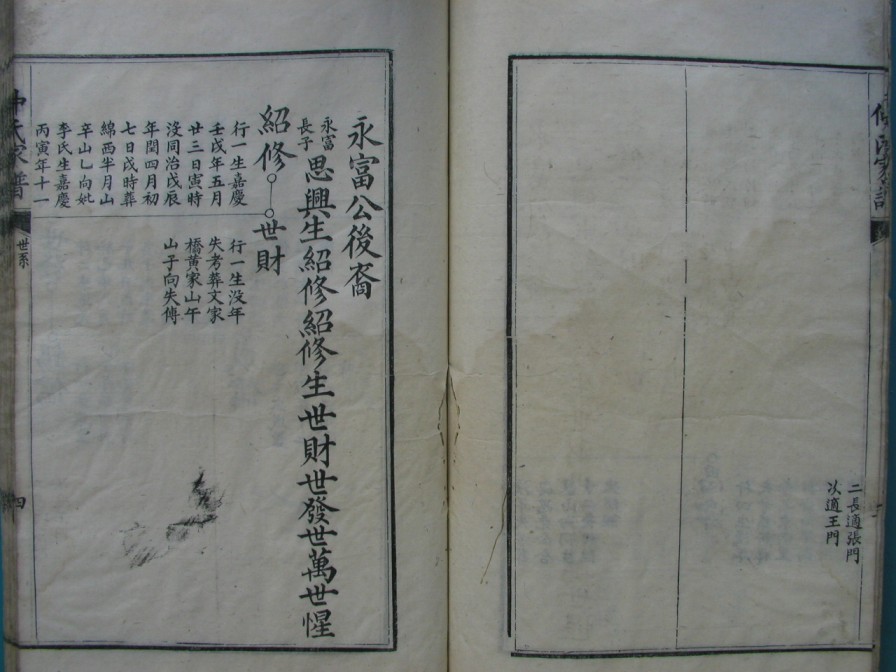 二長適張門
次適王門
永富公後裔
永富
長子
思興生紹修紹修生世財世發世萬世惺
紹修
世財
行一生嘉慶
壬戌年五月
廿三日寅時
沒同治戊辰
年閏四月初
七日戌時葬
綿西半月山
辛山乚向妣
李氏生嘉慶
丙寅年十一
行一生沒年
失考葬文家
橋黃家山午
山子向失傳
氏家譜
世系
四